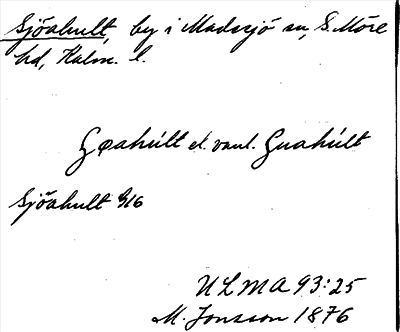 Sjöahult, by i Madesjö sn, S. Möre
hd, Kalm. l.
Gøahúlt el. vanl. Guahúlt
Sjöahult 916
ULMA 93:25
M. Jonsson 1876